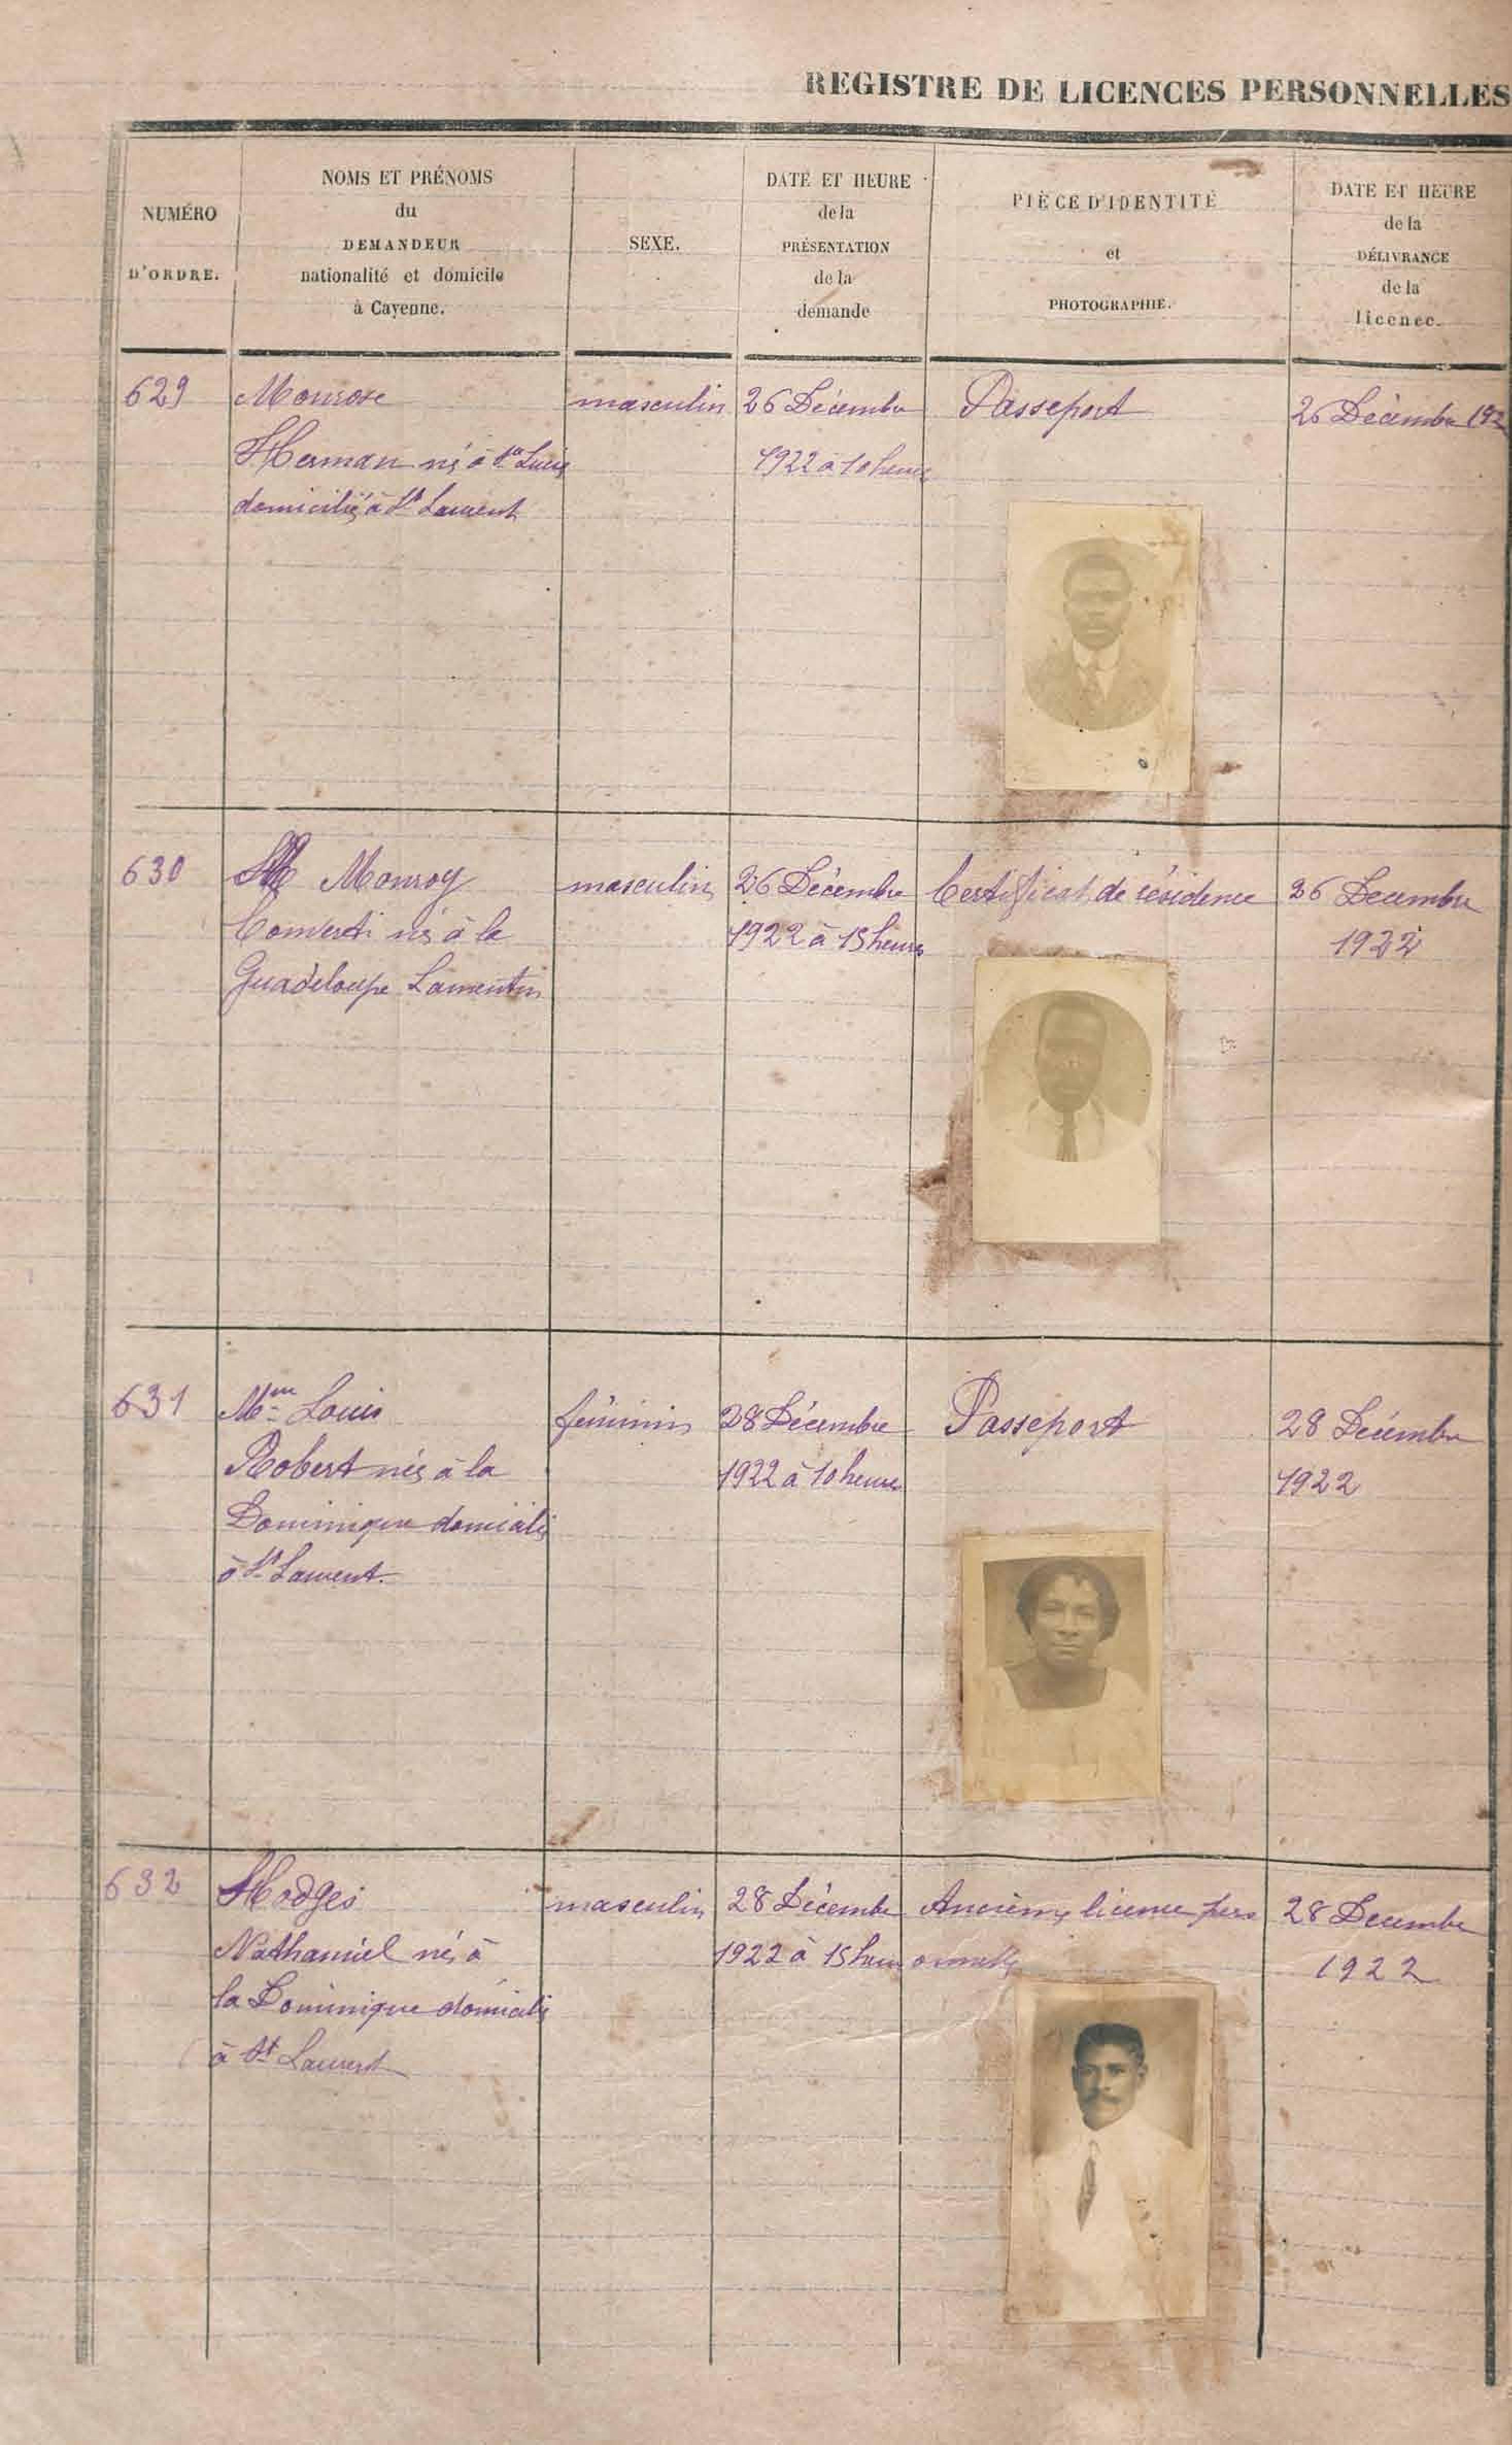 REGISTRE DE LICENCES PERSONNELLES
NUMÉRO
D'ORDRE.
NOMS ET PRÉNOMS
du
DEMANDEUR
nationalité et domicile
à Cayenne.
SEXE.
DATE ET HEURE
de la
PRÉSENTATION
de la
demande
PIÈCE D'IDENTITÉ
et
PHOTOGRAPHIE.
DATE ET HEURE
de la
DÉLIVRANCE
de la
licence.
629
Monrose
Herman né à Ste Lucie
domicilié à St Laurent
masculin
26 Décembre
1922 à 10 heures
Passeport
26 Décembre 192
630
Monroy
Converti né à la
Guadeloupe Lamentin
masculin
26 Décembre
1922 à 15 heures
Certificat de résidence
26 Decembre
1922
631
Mme Louis
Robert née à la
Dominique domicilié
à St Laurent.
féminin
28 Décembre
1922 à 10 heures
Passeport
28 Décembre
1922
632
Hodges
Nathaniel né à
la Dominique domicilié
à St Laurent
masculin
28 Décembre
1922 à 15 heures
Ancienne licence pers
onnelle
28 Decembre
1922